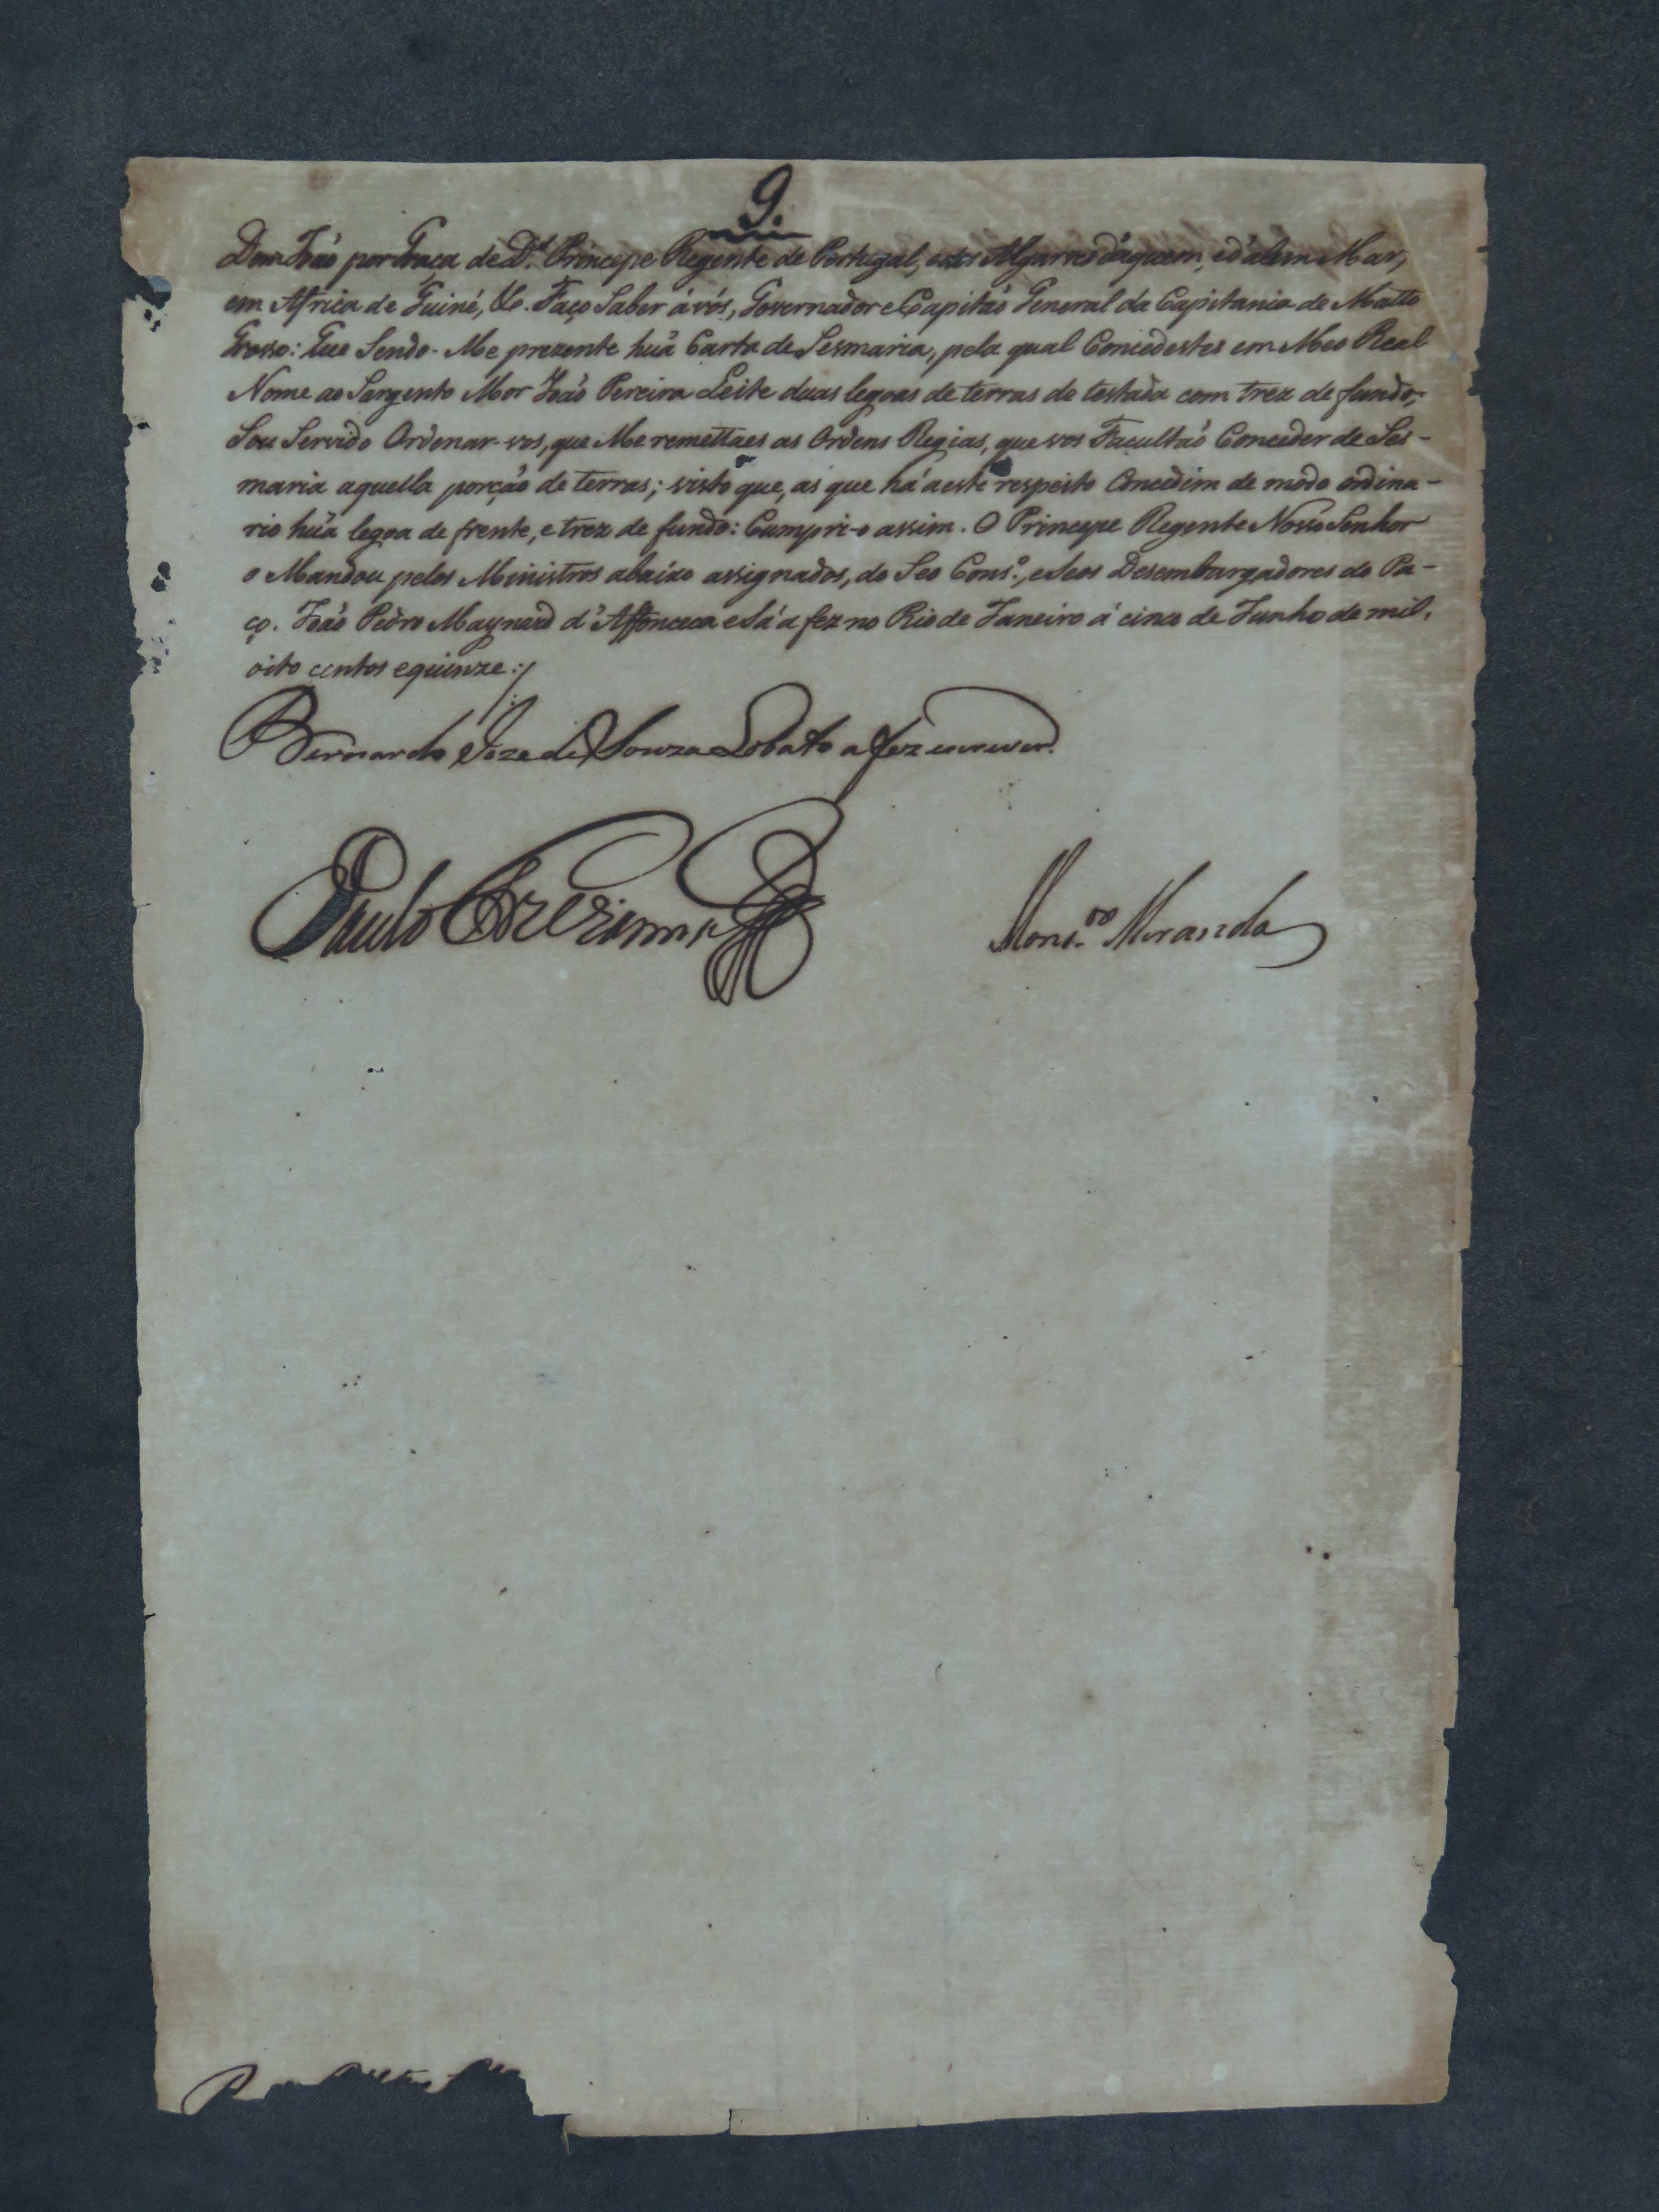 9.
Dom João por Graça de D.s Principe Regente de Portugal, e dos Algarves d'áquem, e d'alem Mar,
em Africa de Guiné, &. Faço Saber á vós, Governador e Capitaõ General da Capitania de Matto
Grosso: Que Sendo-Me prezente huã Carta de Sesmaria, pela qual Concedestes em Meo Real
Nome ao Sargento Mor Joaõ Pereira Leite duas legoas de terras de testada com trez de fundo;
Sou Servido Ordenar-vos, que Me remettaes as Ordens Regias, que vos Facultaõ Conceder de Ses-
maria aquella porçaõ de terras; visto que, as que há a este respeito Concedim de modo ordina-
rio huã legoa de frente, e trez de fundo: Cumpri-o assim. O Principe Regente Nosso Senhor
o Mandou pelos Ministros abaixo assignados, do Seo Cons.o, e Seos Desembargadores do Pa-
ço. Joaõ Pedro Maynard d'Affonceca e Sá a fez no Rio de Janeiro á cinco de Junho de mil,
oito centos e quinze:/
Bernardo Joze de Souza Lobato a fez escrever.
Paulo
Mons.or Miranda